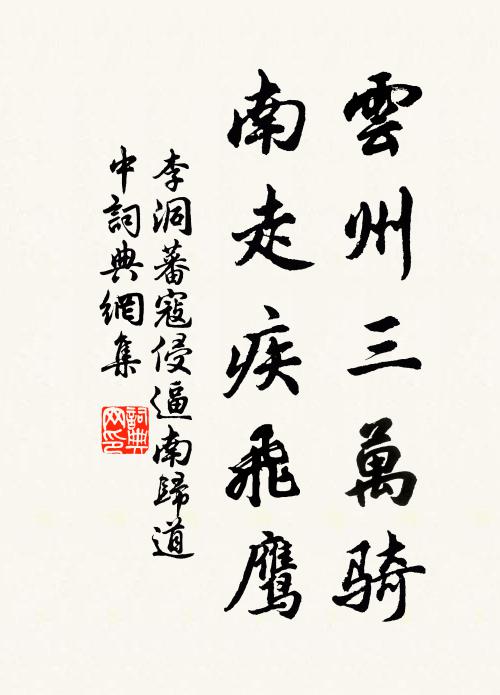 雲州三萬骑
南走疾飛鷹
李洞蕃寇侵逼南歸道
中詞典網集
詞典
网印